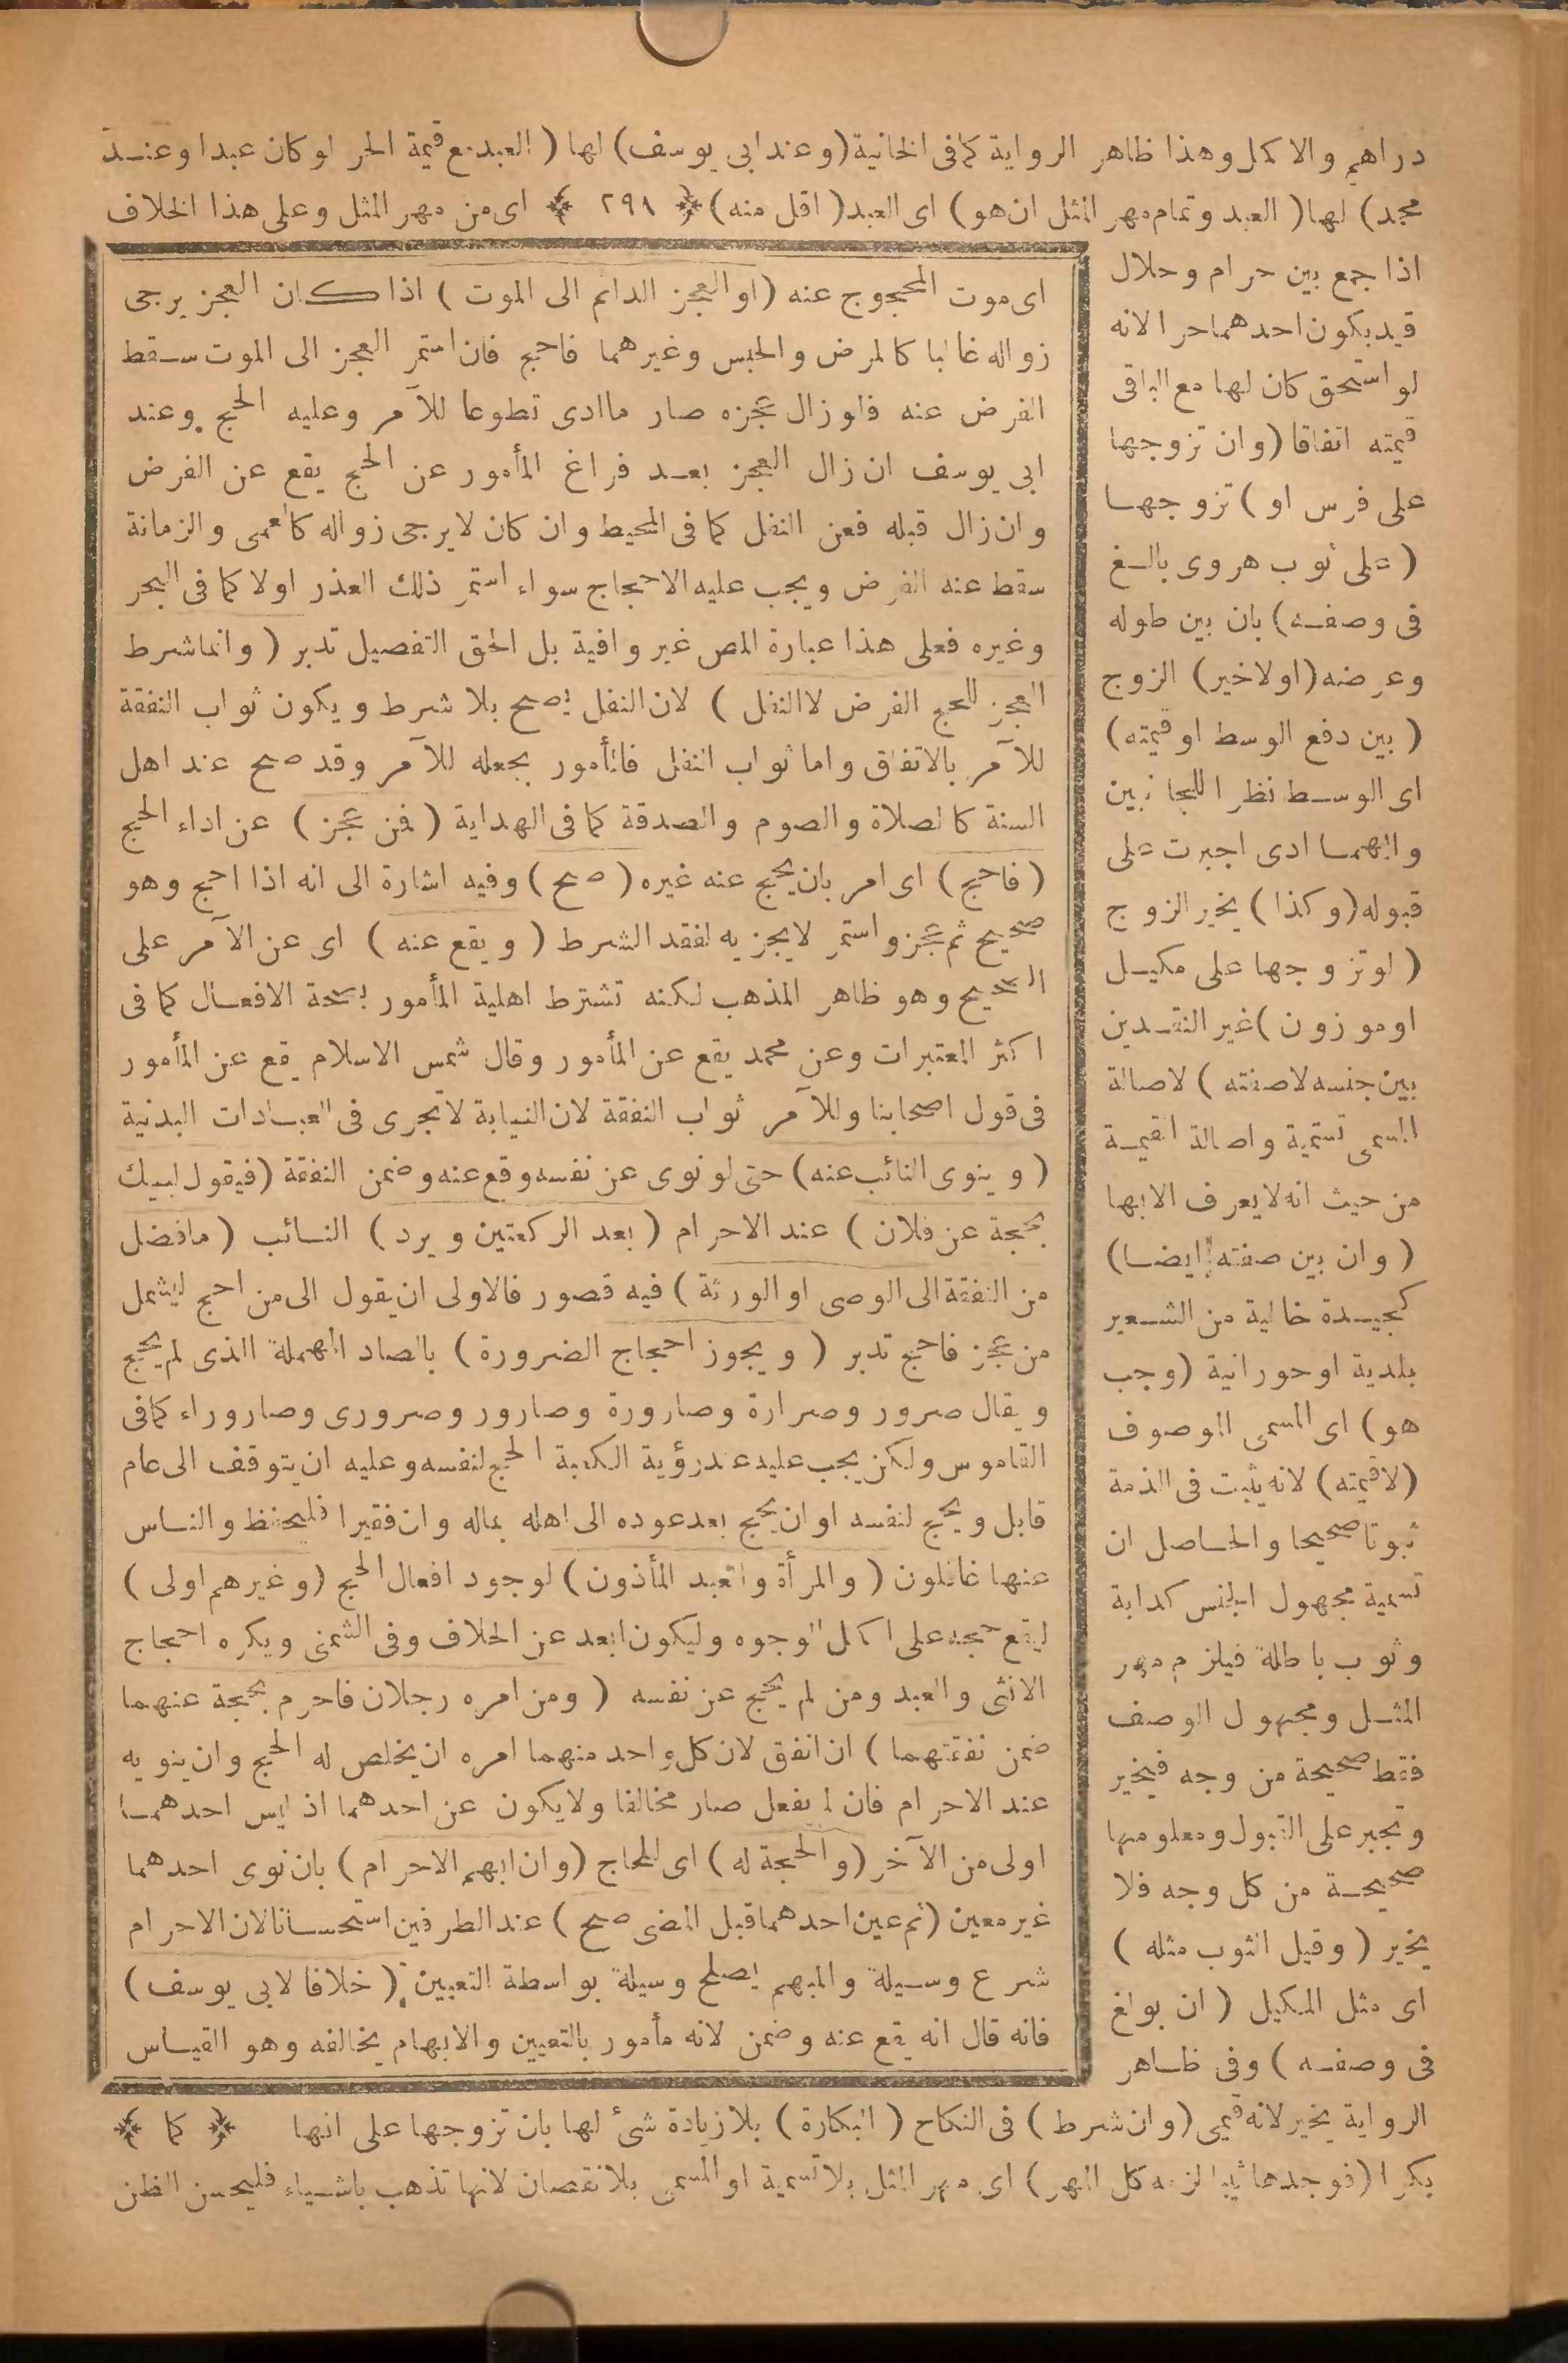 دراهم والاكمل وهذا ظاهر الرواية كما فى الخانية (وعند ابى يوسف) لها (العبد مع قيمة الحر لو كان عبدا وعند
محمد) لها (العبد وتمام مهر المثل ان هو) اى العبد (اقل منه) ﴿ ٢٩٨ ﴾ اى من مهر المثل وعلى هذا الخلاف
اذا جمع بين حرام وحلال
قيد بكون احدهما حرا لانه
لو استحق كان لها مع الباقى
قيمته اتفاقا (وان تزوجها
على فرس او) تزوجها
(على ثوب هروى بالغ
فى وصفه) بان بين طوله
وعرضه (اولا خير) الزوج
(بين دفع الوسط او قيمته)
اى الوسط نظرا للجانبين
وايهما ادى اجبرت على
قبوله (وكذا) يخير الزوج
(لو تزوجها على مكيل
او موزون) غير النقدين
بين جنسه لا صفته) لاصالة
المسمى تسمية واصالة القيمة
من حيث انه لا يعرف الا بها
(وان بين صفته ايضا)
كجيدة خالية من الشعير
بلدية او حورانية (وجب
هو) اى المسمى الموصوف
(لا قيمته) لانه يثبت فى الذمة
ثبوتا صحيحا والحاصل ان
تسمية مجهول الجنس كدابة
وثوب باطلة فيلزم مهر
المثل ومجهول الوصف
فقط صحيحة من وجه فيخير
وتجبر على القبول ومعلومها
صحيحة من كل وجه فلا
يخير (وقيل الثوب مثله)
اى مثل المكيل (ان بولغ
فى وصفه) وفى ظاهر
الرواية يخير لانه قيمى (وان شرط) فى النكاح (البكارة) بلا زيادة شئ لها بان تزوجها على انها ﴿ كما ﴾
بكرا (فوجدها ثيبا لزمه كل المهر) اى مهر المثل بلا تسمية او المسمى بلا نقصان لانها تذهب باشياء فليحسن الظن
اى موت المحجوج عنه (او العجز الدائم الى الموت) اذا كان العجز يرجى
زواله غالبا كالمرض والحبس وغيرهما فاحج فان استمر العجز الى الموت سقط
الفرض عنه فلو زال عجزه صار ما ادى تطوعا للآمر وعليه الحج وعند
ابى يوسف ان زال العجز بعد فراغ المأمور عن الحج يقع عن الفرض
وان زال قبله فعن النفل كما فى المحيط وان كان لا يرجى زواله كالعمى والزمانة
سقط عنه الفرض ويجب عليه الاحجاج سواء استمر ذلك العذر اولا كما فى البحر
وغيره فعلى هذا عبارة المص غير وافية بل الحق التفصيل تدبر (وانما شرط
العجز للحج الفرض لا النفل) لان النفل يصح بلا شرط ويكون ثواب النفقة
للآمر بالاتفاق واما ثواب النفل فالمأمور يجعله للآمر وقد صح عند اهل
السنة كالصلاة والصوم والصدقة كما فى الهداية (فمن عجز) عن اداء الحج
(فاحج) اى امر بان يحج عنه غيره (صح) وفيه اشارة الى انه اذا احج وهو
صحيح ثم عجز واستمر لا يجزيه لفقد الشرط (ويقع عنه) اى عن الآمر على
الصحيح وهو ظاهر المذهب لكنه تشترط اهلية المأمور بصحة الافعال كما فى
اكثر المعتبرات وعن محمد يقع عن المأمور وقال شمس الاسلام يقع عن المأمور
فى قول اصحابنا وللآمر ثواب النفقة لان النيابة لا تجرى فى العبادات البدنية
(وينوى النائب عنه) حتى لو نوى عن نفسه وقع عنه وضمن النفقة (فيقول لبيك
بحجة عن فلان) عند الاحرام (بعد الركعتين ويرد) النائب (ما فضل
من النفقة الى الوصى او الورثة) فيه قصور فالاولى ان يقول الى من احج ليشمل
من عجز فاحج تدبر (ويجوز احجاج الضرورة) بالصاد المهملة الذى لم يحج
ويقال صرور وصرارة وصارورة وصارور وصرورى وصاروراء كما فى
القاموس ولكن يجب عليه عند رؤية الكعبة الحج لنفسه وعليه ان يتوقف الى عام
قابل ويحج لنفسه او ان يحج بعد عوده الى اهله بماله وان فقيرا فليحفظ والناس
عنها غافلون (والمرأة والعبد المأذون) لوجود افعال الحج (وغيرهم اولى)
ليقع حجه على اكمل الوجوه وليكون ابعد عن الخلاف وفى الشمنى ويكره احجاج
الانثى والعبد ومن لم يحج عن نفسه (ومن امره رجلان فاحرم بحجة عنهما
ضمن نفقتهما) ان انفق لان كل واحد منهما امره ان يخلص له الحج وان ينويه
عند الاحرام فان لم يفعل صار مخالفا ولا يكون عن احدهما اذ ليس احدهما
اولى من الآخر (والحجة له) اى للحاج (وان ابهم الاحرام) بان نوى احدهما
غير معين (ثم عين احدهما قبل المضى صح) عند الطرفين استحسانا لان الاحرام
شرع وسيلة والمبهم يصلح وسيلة بواسطة التعيين (خلافا لابى يوسف)
فانه قال انه يقع عنه وضمن لانه مأمور بالتعيين والابهام يخالفه وهو القياس